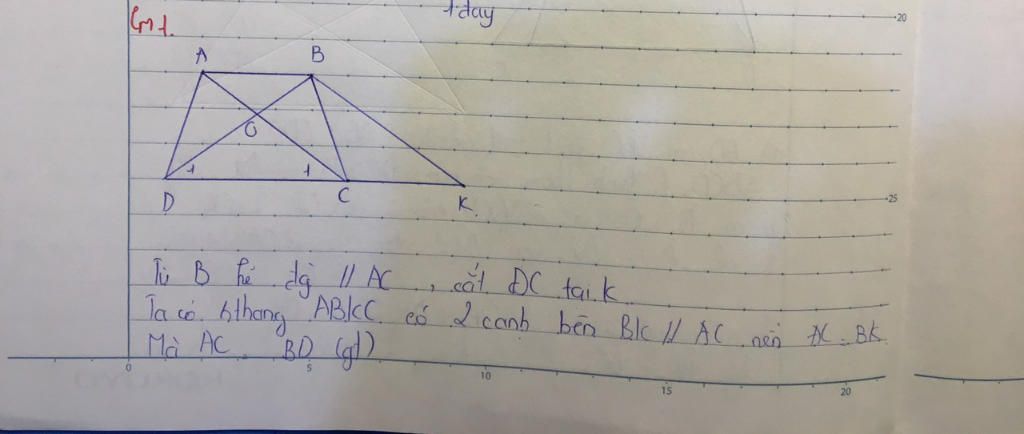 1 dạy
20
Cm1.
A B
O
1 1
D C K.
25
Từ B kẻ đg // AC, cắt DC tại K
Ta có hthang ABKC có 2 cạnh bên BK // AC nên AC = BK
Mà AC = BD (gt)
0 5 10 15 20